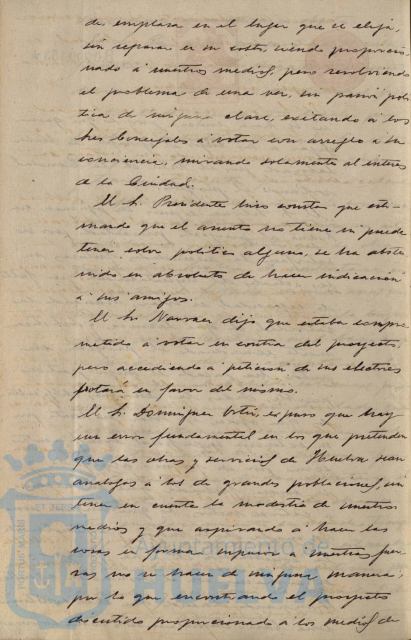 de emplaza en el lugar que se elija,
sin reparar en su coste, siendo proporcio
nado á nuestros medios, pero resolviendo
el problema de una vez, sin pasión polí
tica de ninguna clase, excitando á los
Sres Concejales á votar con arreglo a su
conciencia, mirando solamente al interes
de la Ciudad.
El Sr. Presidente hizo constar que esti-
mando que el asunto no tiene ni puede
tener color politico alguno, se ha abste
nido en absoluto de hacer indicación
á sus amigos.
El Sr. dijo que estaba compro
metido á votar en contra del proyecto,
pero accediendo á peticion de sus electores
votará en favor del mismo.
El Sr. Dominguez Ortiz, expuso que hay
un error fundamental en los que pretenden
que las obras y servicios de Huelva sean
analogos á los de grandes poblaciones, sin
tener en cuenta la modestia de nuestros
medios y que aspirando á hacer las
cosas en forma superior á nuestras fuer
zas no se hacen de ninguna manera,
por lo que encontrando el proyecto
discutido proporcionado á los medios de
Ayuntamiento de
HUELVA